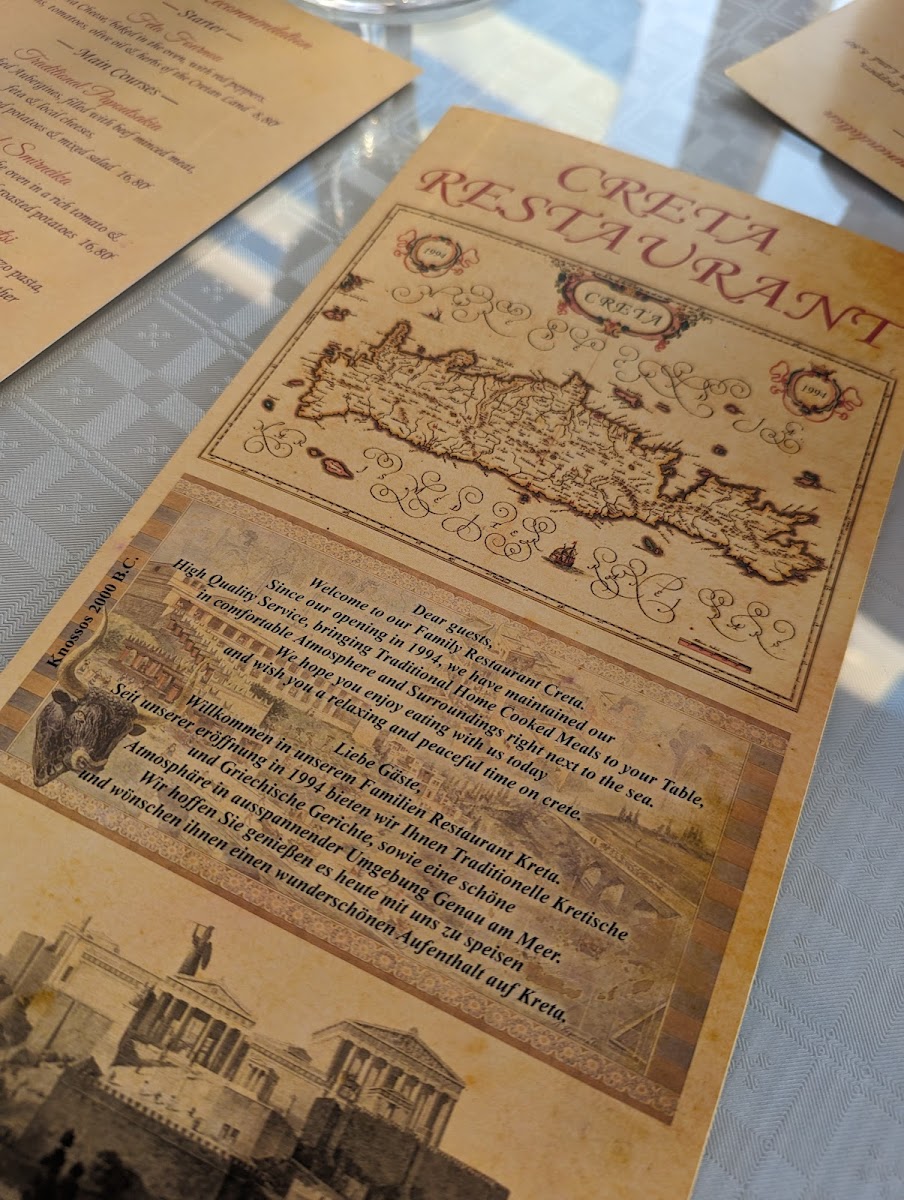 Recommendation
— Starter —
Feta Fournou
Cheese, baked in the oven, with red peppers,
tomatoes, olive oil & herbs of the Cretan Land 8,80
— Main Courses —
Traditional Papoutsakia
Aubergines, filled with beef minced meat,
feta & local cheeses.
potatoes & mixed salad 16,80
Smirneika
oven in a rich tomato &
roasted potatoes 16,80
pasta,
CRETA
RESTAURANT
1994
CRETA
1994
Knossos 2000 B.C.
Dear guests,
Welcome to our Family Restaurant Creta.
Since our opening in 1994, we have maintained our
High Quality Service, bringing Traditional Home Cooked Meals to your Table,
in comfortable Atmosphere and Surroundings right next to the sea.
We hope you enjoy eating with us today
and wish you a relaxing and peaceful time on crete.
Liebe Gäste,
Willkommen in unserem Familien Restaurant Kreta.
Seit unserer eröffnung in 1994 bieten wir Ihnen Traditionelle Kretische
und Griechische Gerichte, sowie eine schöne
Atmosphäre in ausspannender Umgebung Genau am Meer.
Wir hoffen Sie genießen es heute mit uns zu speisen
und wünschen ihnen einen wunderschönen Aufenthalt auf Kreta,